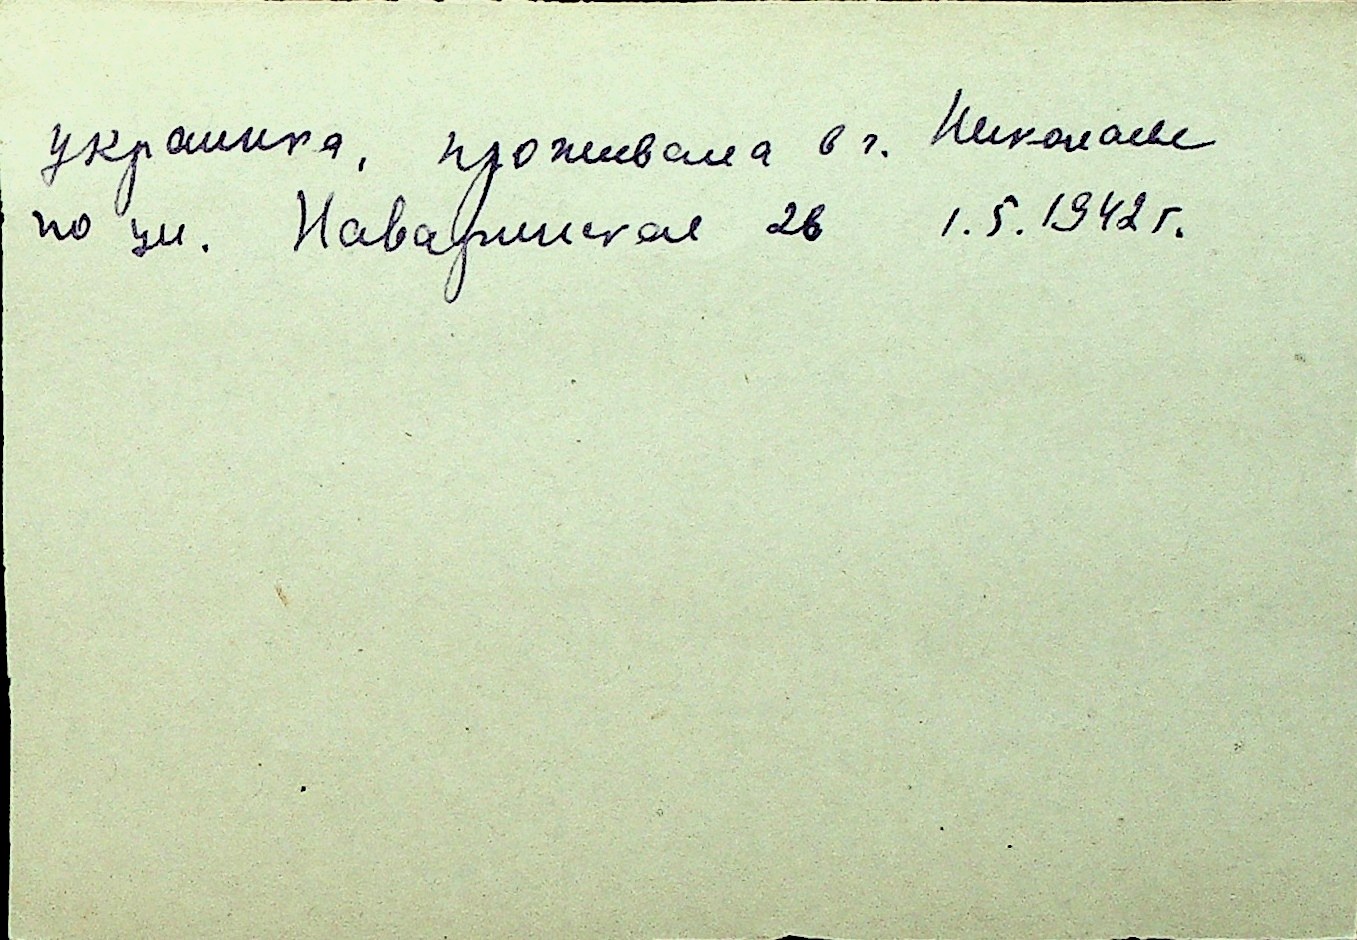 украинка, проживала в г. Николаеве
по ул. Наваринская 26 1.5.1942 г.